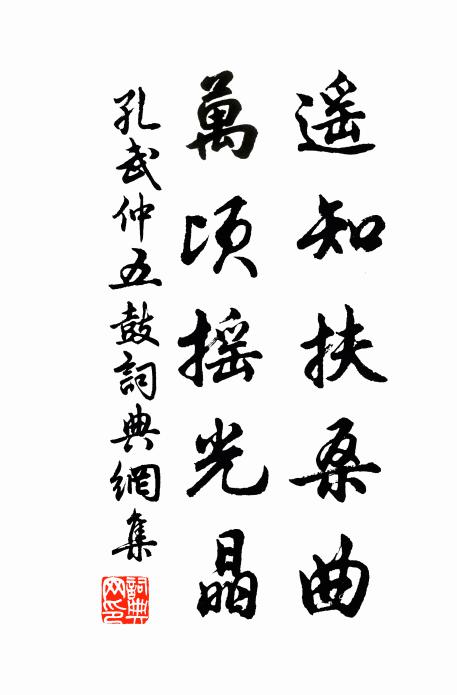 遥知扶桑曲
萬頃摇光晶
孔武仲五鼓詞典網集
詞典网印